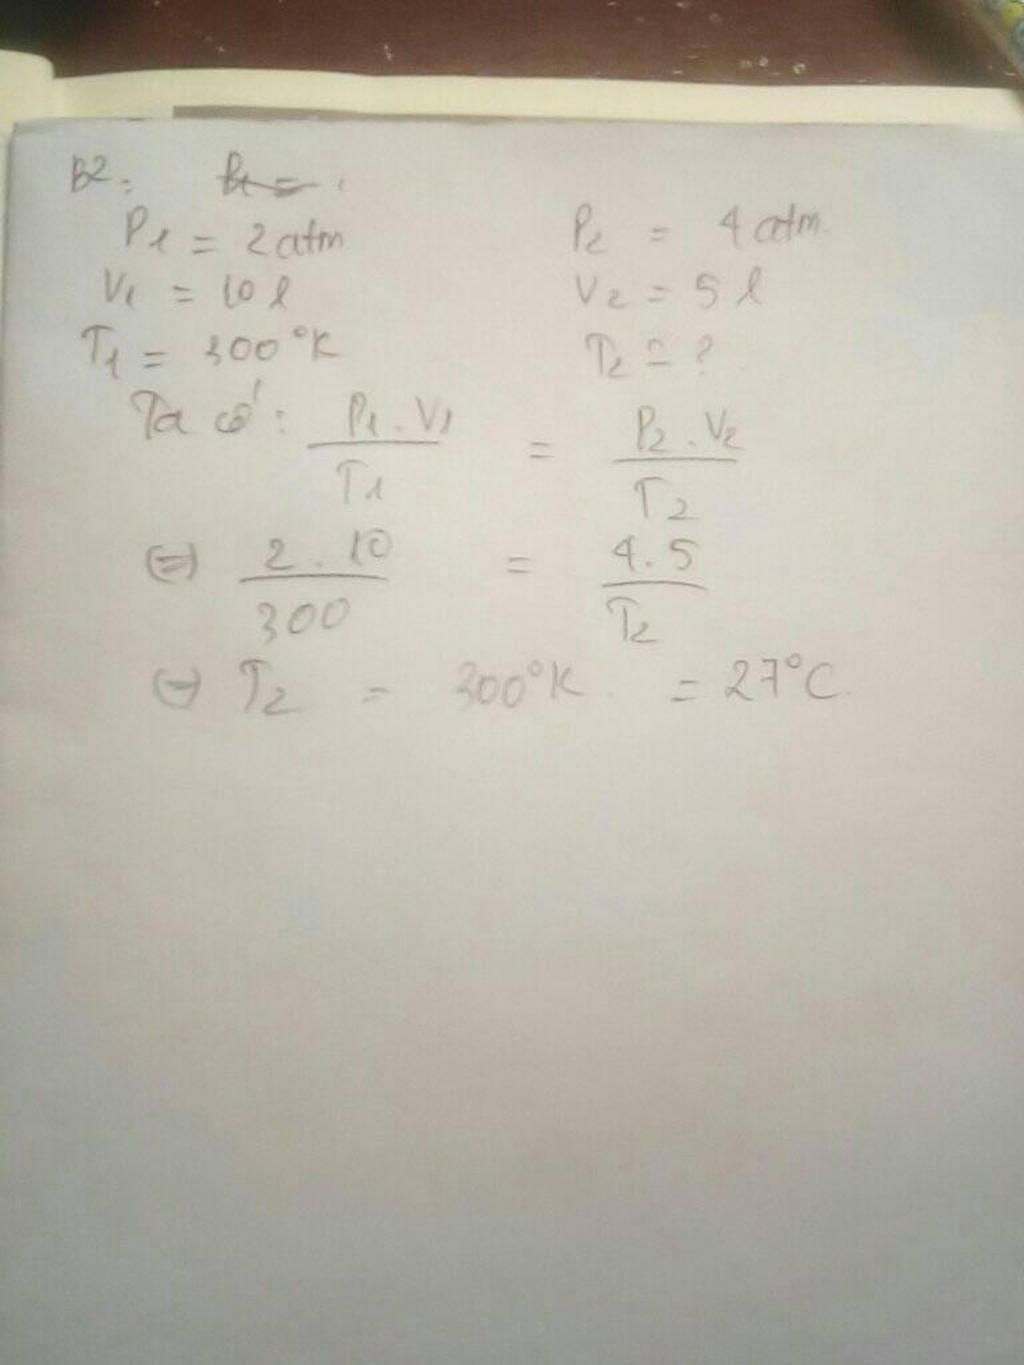 B2:
P1 = 2 atm P2 = 4 atm
V1 = 10 l V2 = 5 l
T1 = 300°K T2 = ?
Ta có: P1 . V1 / T1 = P2 . V2 / T2
⇔ 2 . 10 / 300 = 4 . 5 / T2
⇔ T2 = 300°K. = 27°C.